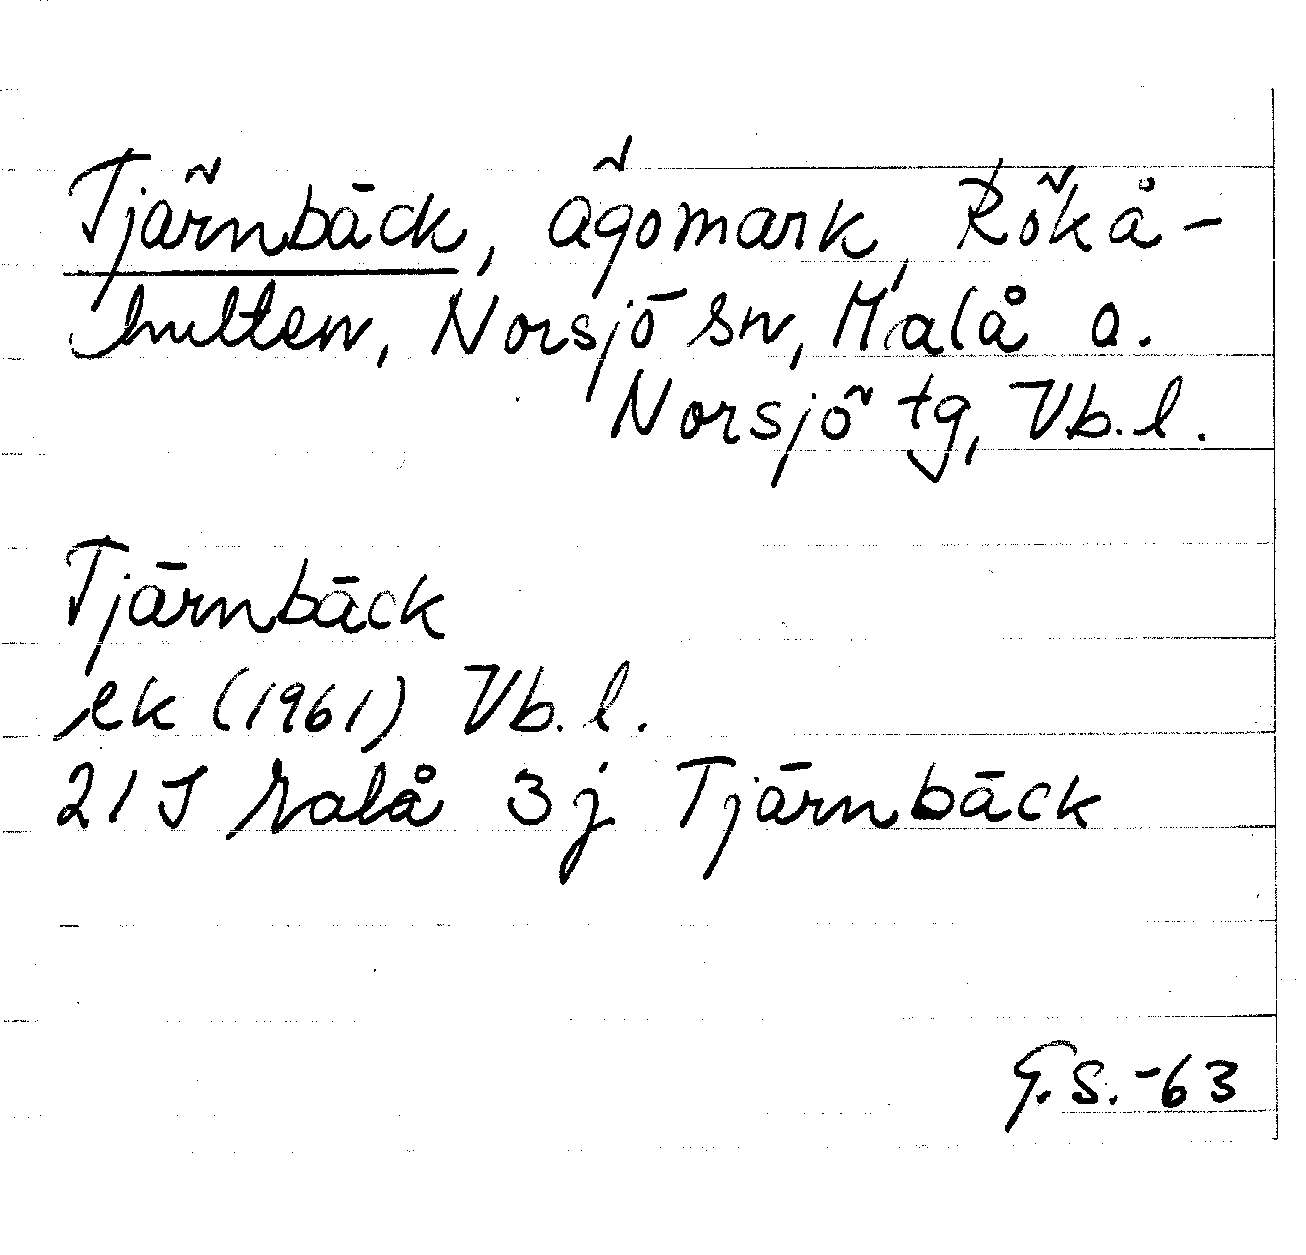 Tjärnbäck, ägomark, Rökå-
hulten, Norsjö sn, Malå o.
Norsjö tg, Vb. l.
Tjärnbäck
ek (1961) Vb. l.
21 J Malå 3j Tjärnbäck
G.S. -63